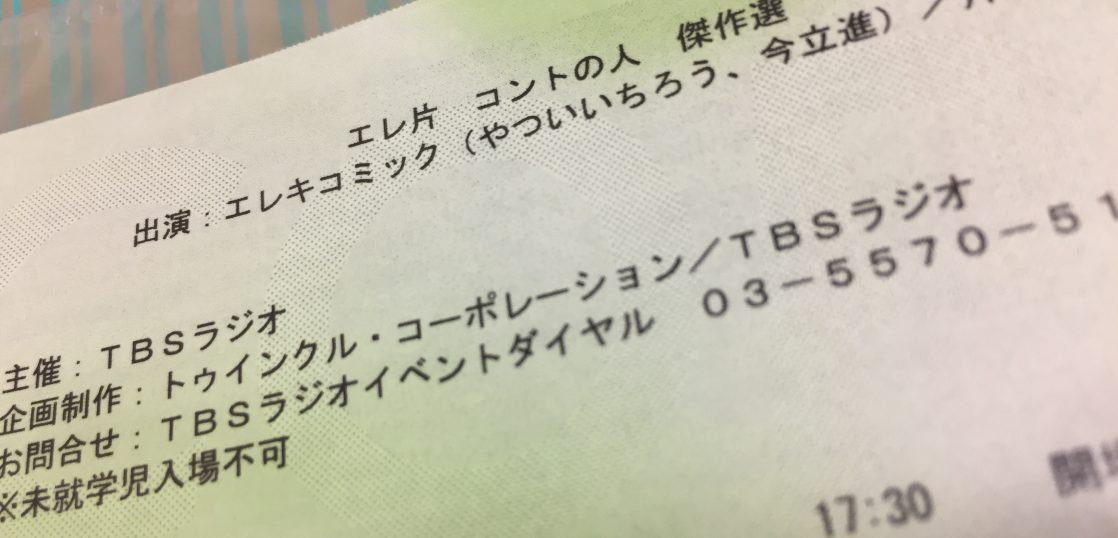 エレ片　コントの人　傑作選
出演：エレキコミック（やついいちろう、今立進）／
主催：ＴＢＳラジオ
企画制作：トゥインクル・コーポレーション／ＴＢＳラジオ
お問合せ：ＴＢＳラジオイベントダイヤル　０３－５５７０－５１
※未就学児入場不可
17:30　開